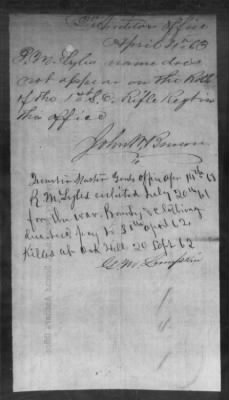 Auditors Office
April 21st 63
P. M. Lyles name does
not appear on the Roll
of the 1st S.C. Rifle Regt in
this office
John
Quarter Master Genls Office Apr 14th 63
R M. Lyles enlisted July 20th 61
for the war. Bounty & clothing
due & pay to 30th April 62,
Killed at Ox Hill 20 Sept 62